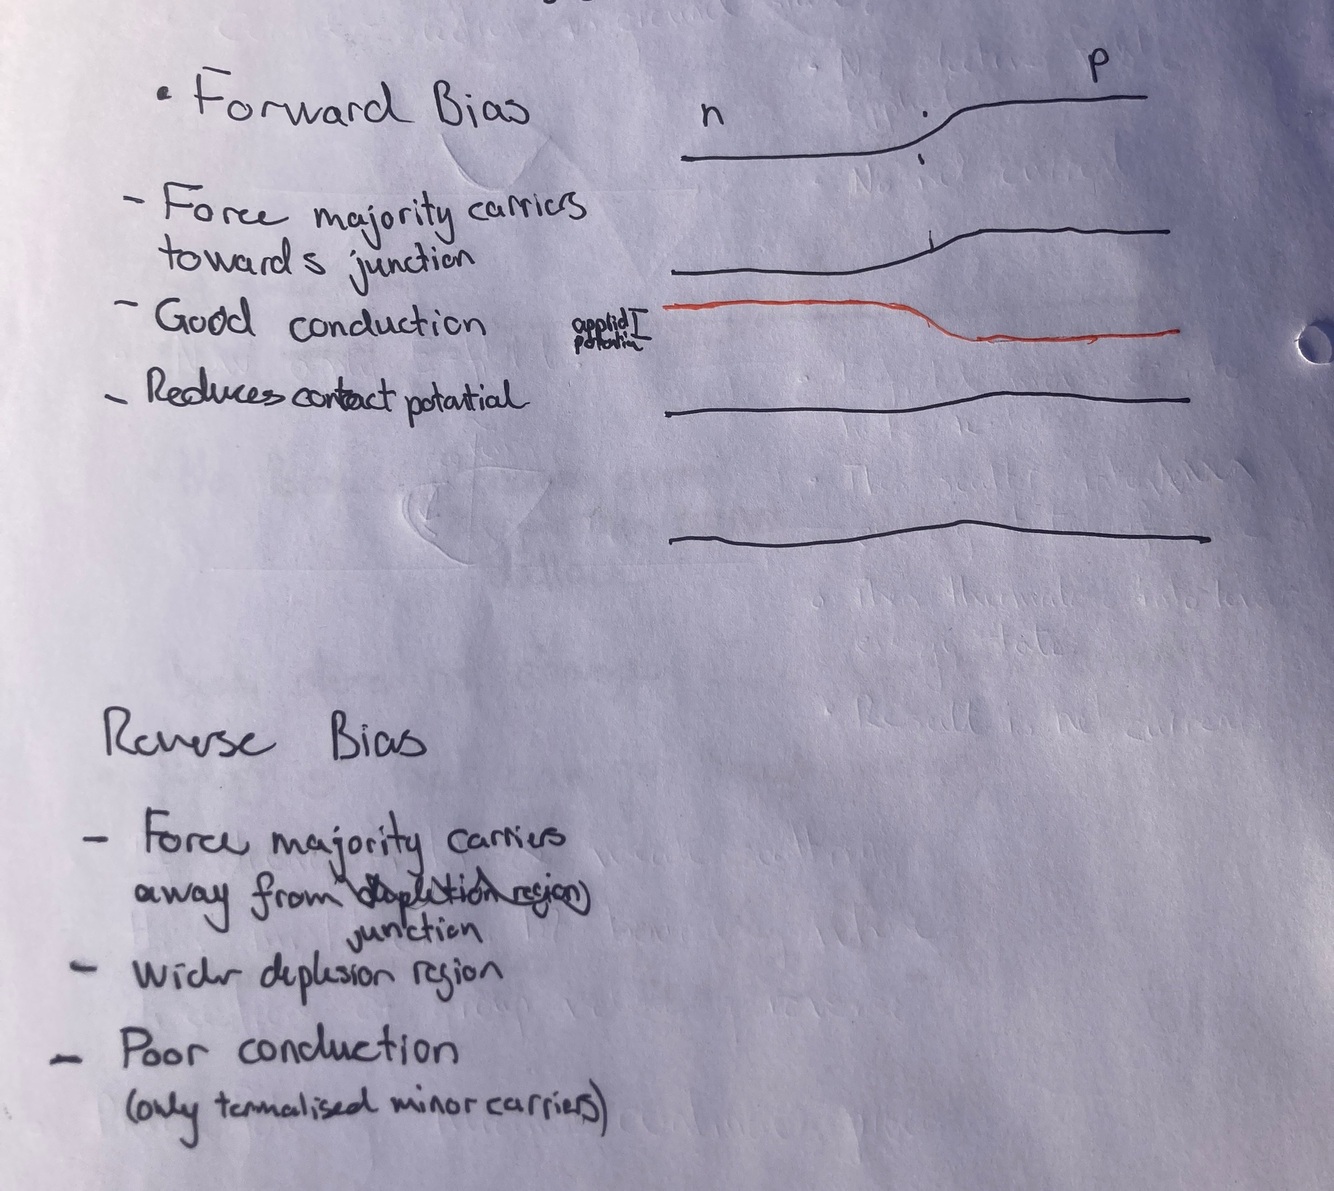 • Forward Bias
n
p
- Force majority carriers
towards junction
- Good conduction
applid
potential
- Reduces contact potential
Reverse Bias
- Force majority carriers
away from
junction
- Wider deplesion region
- Poor conduction
(only termalised minor carriers)